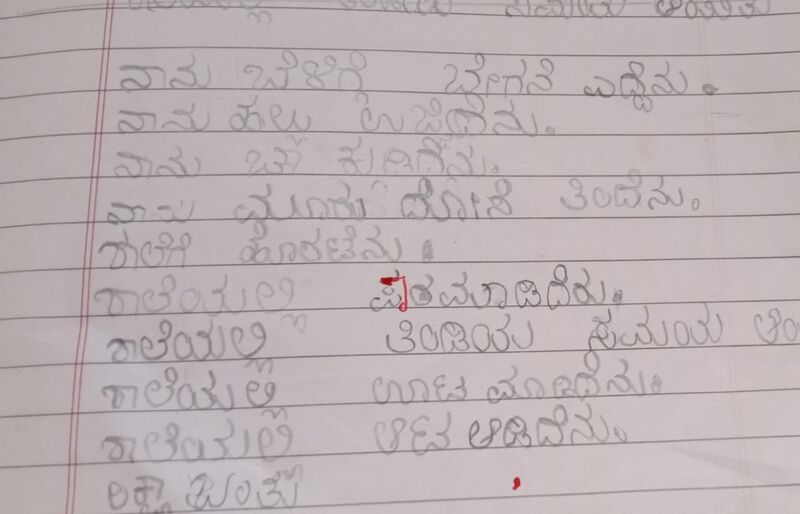 ನಾನು ಬೆಳಿಗ್ಗೆ ಬೇಗನೆ ಎದ್ದೆನು.
ನಾನು ಹಲ್ಲು ಉಜ್ಜಿದೆನು.
ನಾನು ಕುಡಿದೆನು.
ನಾನು ಮೂರು ದೋಸೆ ತಿಂದೆನು.
ಶಾಲೆಗೆ ಹೊರಟೆನು.
ಶಾಲೆಯಲ್ಲಿ ಪಾಠಮಾಡಿದೆನು.
ಶಾಲೆಯಲ್ಲಿ ತಿಂಡಿಯ ಸಮಯ
ಶಾಲೆಯಲ್ಲಿ ಊಟ ಮಾಡಿದೆನು.
ಶಾಲೆಯಲ್ಲಿ ಆಟ ಆಡಿದೆನು.